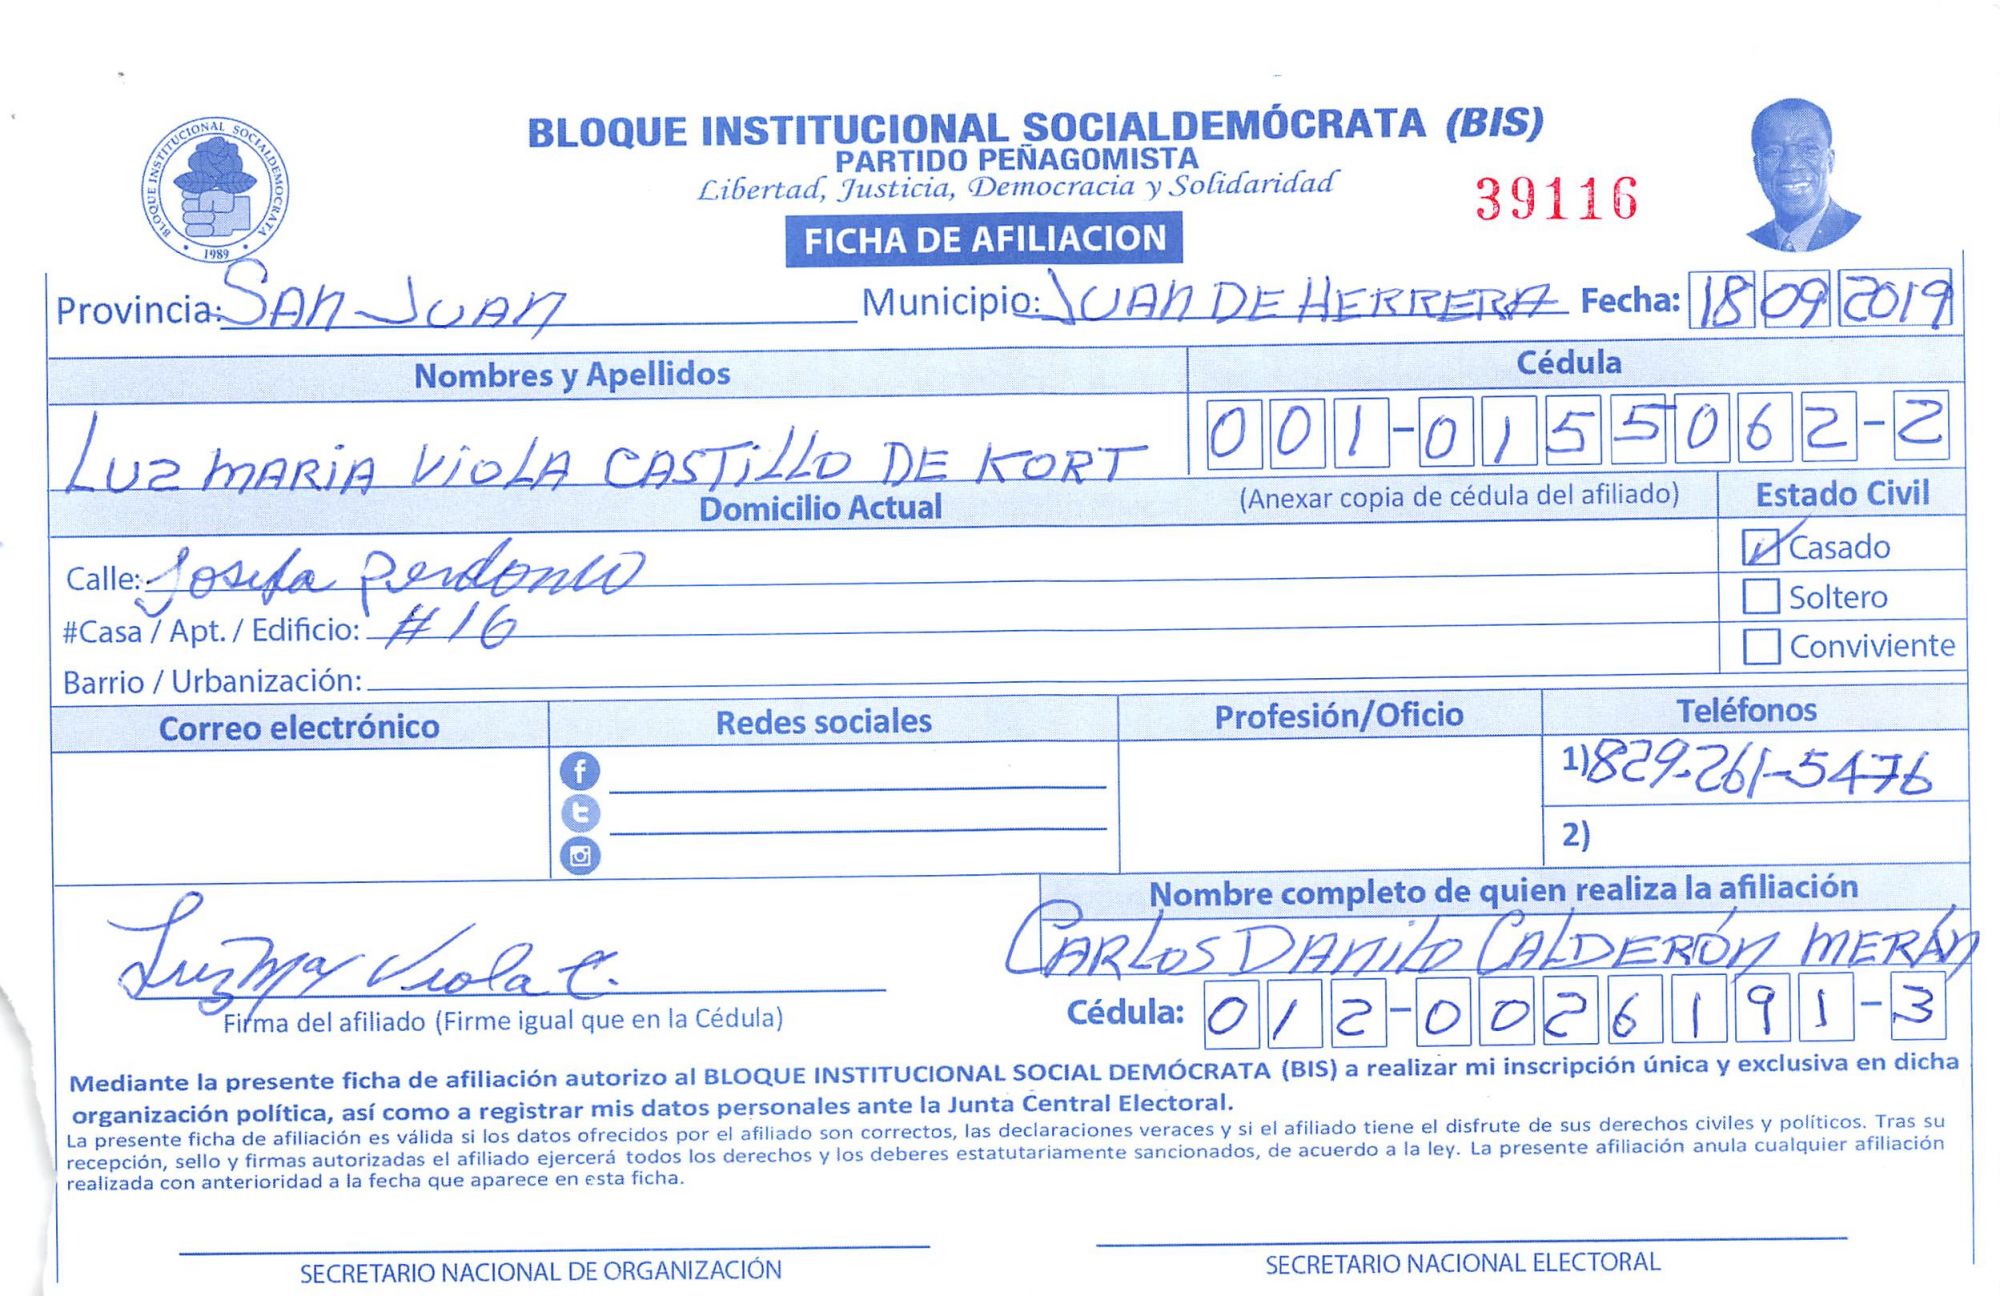 BLOQUE INSTITUCIONAL SOCIALDEMOCRATA
1989
BLOQUE INSTITUCIONAL SOCIALDEMÓCRATA (BIS)
PARTIDO PEÑAGOMISTA
Libertad, Justicia, Democracia y Solidaridad
39116
FICHA DE AFILIACION
Provincia: SAN JUAN Municipio: JUAN DE HERRERA Fecha: 18 09 2019
Nombres y Apellidos Cédula
LUZ MARIA VIOLA CASTILLO DE KORT 001-0155062-2
Domicilio Actual (Anexar copia de cédula del afiliado) Estado Civil
Calle: Josefa Perdomo Casado
#Casa / Apt. / Edificio: #16 Soltero
Barrio / Urbanización: Conviviente
Correo electrónico Redes sociales Profesión/Oficio Teléfonos
1) 829-261-5476
2)
Nombre completo de quien realiza la afiliación
CARLOS DANILO CALDERÓN MERÁN
Luz Ma Viola C.
Firma del afiliado (Firme igual que en la Cédula) Cédula: 012-0026191-3
Mediante la presente ficha de afiliación autorizo al BLOQUE INSTITUCIONAL SOCIAL DEMÓCRATA (BIS) a realizar mi inscripción única y exclusiva en dicha
organización política, así como a registrar mis datos personales ante la Junta Central Electoral.
La presente ficha de afiliación es válida si los datos ofrecidos por el afiliado son correctos, las declaraciones veraces y si el afiliado tiene el disfrute de sus derechos civiles y políticos. Tras su
recepción, sello y firmas autorizadas el afiliado ejercerá todos los derechos y los deberes estatutariamente sancionados, de acuerdo a la ley. La presente afiliación anula cualquier afiliación
realizada con anterioridad a la fecha que aparece en esta ficha.
SECRETARIO NACIONAL DE ORGANIZACIÓN SECRETARIO NACIONAL ELECTORAL